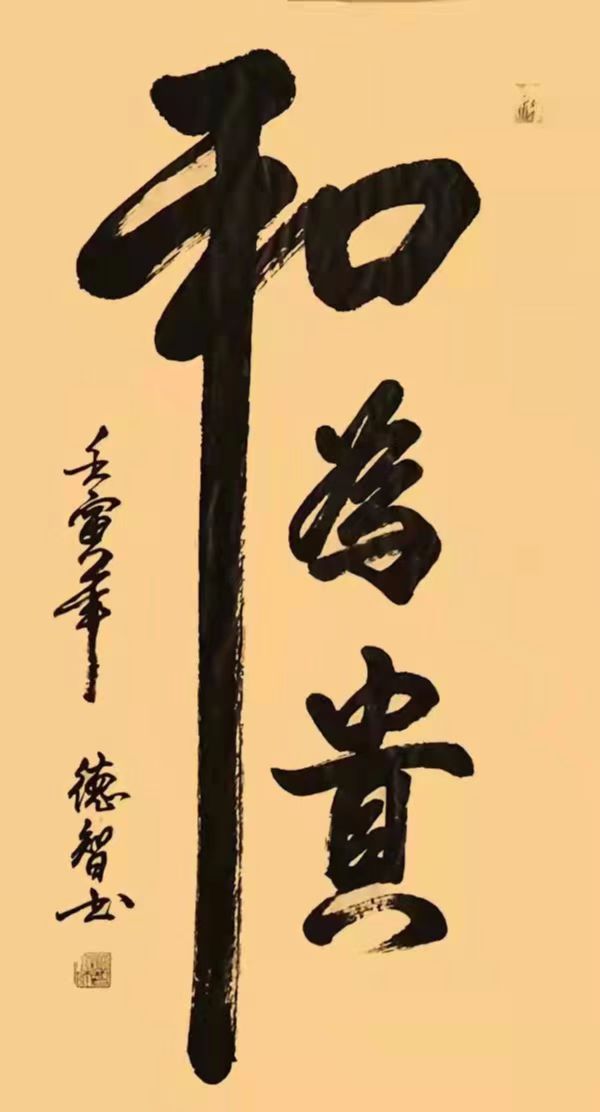 和為貴
壬寅年 德智书